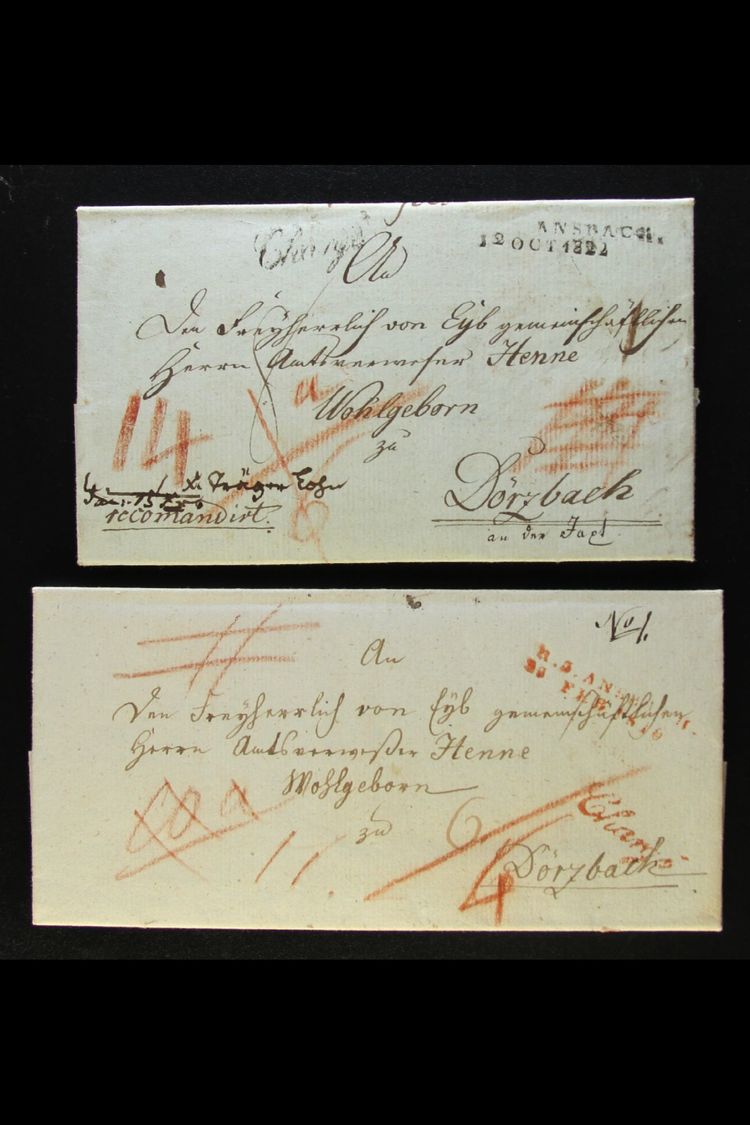 Chargé
ANSBACH.
12 OCT 1822
An
Den Freyherrlich von Eyb gemeinschäftlichen
Herrn Amtsverweser Henne
Wohlgeborn
zu
Dörzbach
an der Jaxt
14
Träger Lohn
recomandirt.
No 1.
An
Den Freyherrlich von Eyb gemeinschaftlichen
Herrn Amtsverweßer Henne
Wohlgeborn
zu
Dörzbach
Chargé
6
4